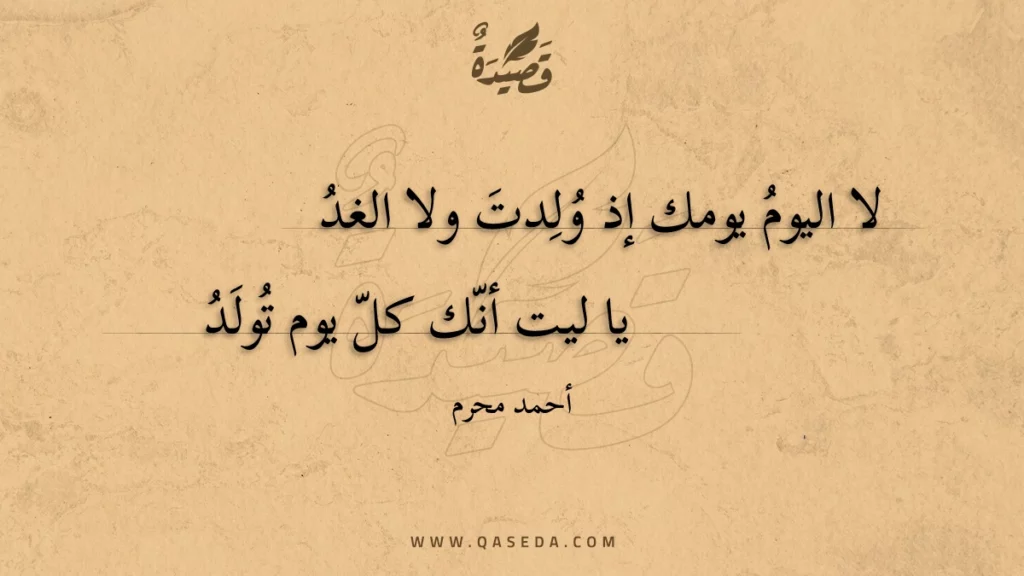 قَصِيْدَةٌ
لا اليومُ يومك إذ وُلِدتَ ولا الغدُ
يا ليت أنّك كلّ يوم تُولَدُ
أحمد محرم
WWW.QASEDA.COM